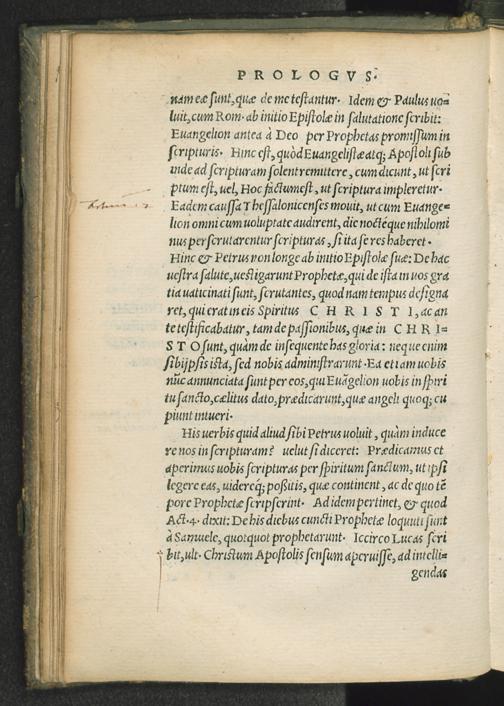 PROLOGVS.
nam eæ sunt, quæ de me testantur. Idem & Paulus uo=
luit, cum Rom. ab initio Epistolæ in salutatione scribit:
Euangelion antea à Deo per Prophetas promissum in
scripturis. Hinc est, quòd Euangelistæ atq; Apostoli sub
inde ad scripturam solent remittere, cum dicunt, ut scri
ptum est, uel, Hoc factum est, ut scriptura impleretur.
Eadem caussa Thessalonicenses mouit, ut cum Euange=
lion omni cum uoluptate audirent, die noctéque nihilomi
nus perscrutarentur scripturas, si ita se res haberet.
Hinc & Petrus non longe ab initio Epistolæ suæ: De hac
uestra salute, uestigarunt Prophetæ, qui de ista in uos gra
tia uaticinati sunt, scrutantes, quod nam tempus designa
ret, qui erat in eis Spiritus CHRISTI, ac an
te testificabatur, tam de passionibus, quæ in CHRI=
STO sunt, quàm de insequente has gloria: neque enim
sibijpsis ista, sed nobis administrarunt. Ea etiam uobis
nūc annunciata sunt per eos, qui Euāgelion uobis in spiri
tu sancto, cælitus dato, prædicarunt, quæ angeli quoq; cu
piunt intueri.
His uerbis quid aliud sibi Petrus uoluit, quàm induce
re nos in scripturam? uelut si diceret: Prædicamus et
aperimus uobis scripturas per spiritum sanctum, ut ipsi
legere eas, uidereq; possitis, quæ continent, ac de quo tē
pore Prophetæ scripserint. Ad idem pertinet, & quod
Act. 4. dixit: De his diebus cuncti Prophetæ loquuti sunt
à Samuele, quotquot prophetarunt. Iccirco Lucas scri
bit, ult. Christum Apostolis sensum aperuisse, ad intelli=
gendas